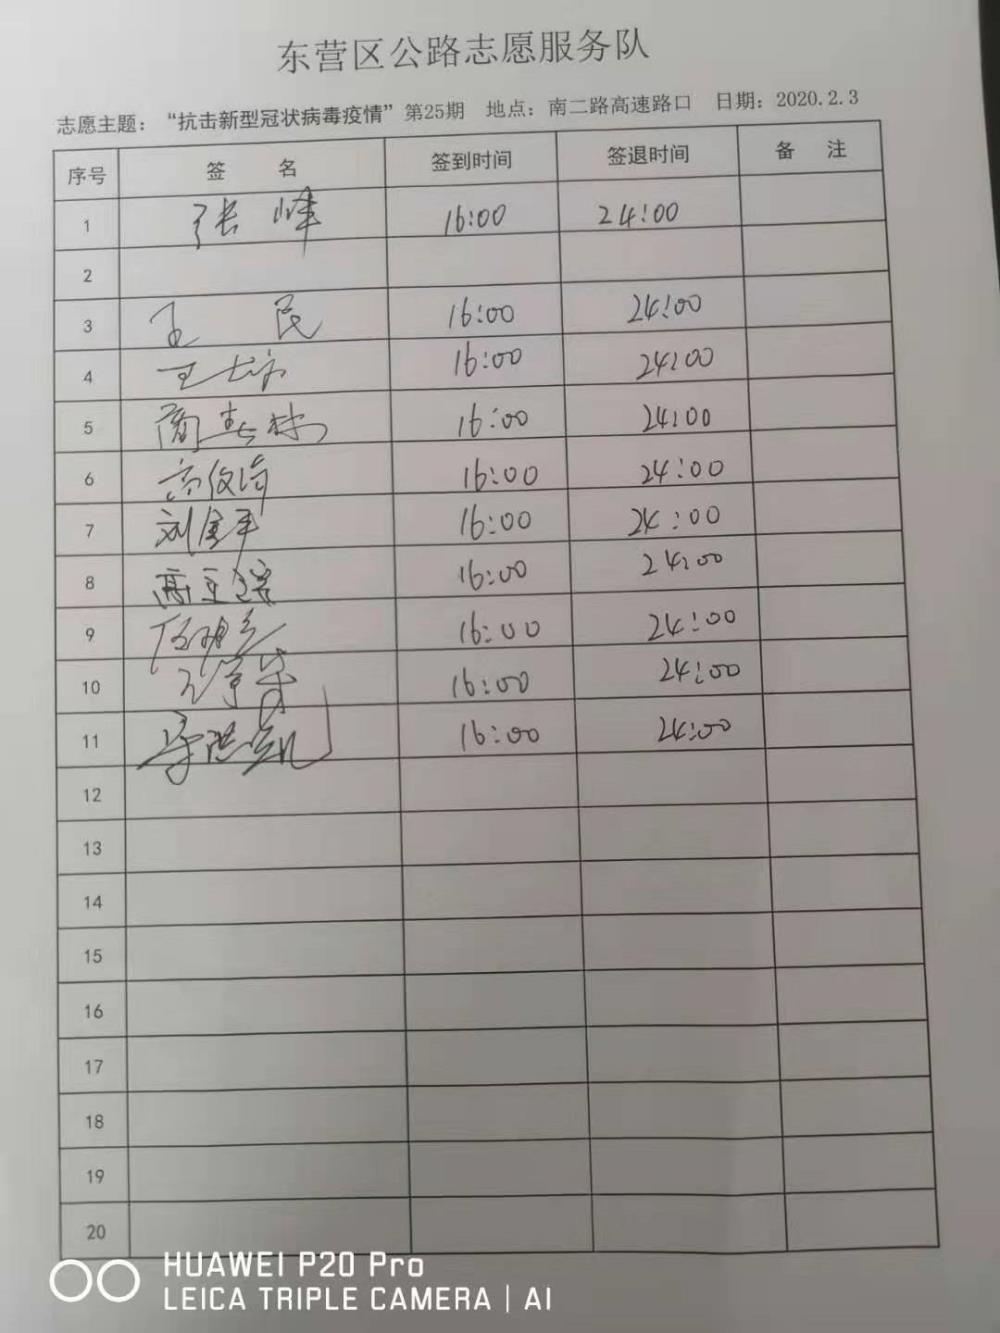 东营区公路志愿服务队
志愿主题：“抗击新型冠状病毒疫情”第25期 地点：南二路高速路口 日期：2020.2.3
序号 签 名 签到时间 签退时间 备 注
1 张峰 16:00 24:00
2
3 王民 16:00 24:00
4 16:00 24:00
5 16:00 24:00
6 16:00 24:00
7 刘金平 16:00 24:00
8 16:00 24:00
9 16:00 24:00
10 16:00 24:00
11 16:00 24:00
12
13
14
15
16
17
18
19
20
HUAWEI P20 Pro
LEICA TRIPLE CAMERA | AI